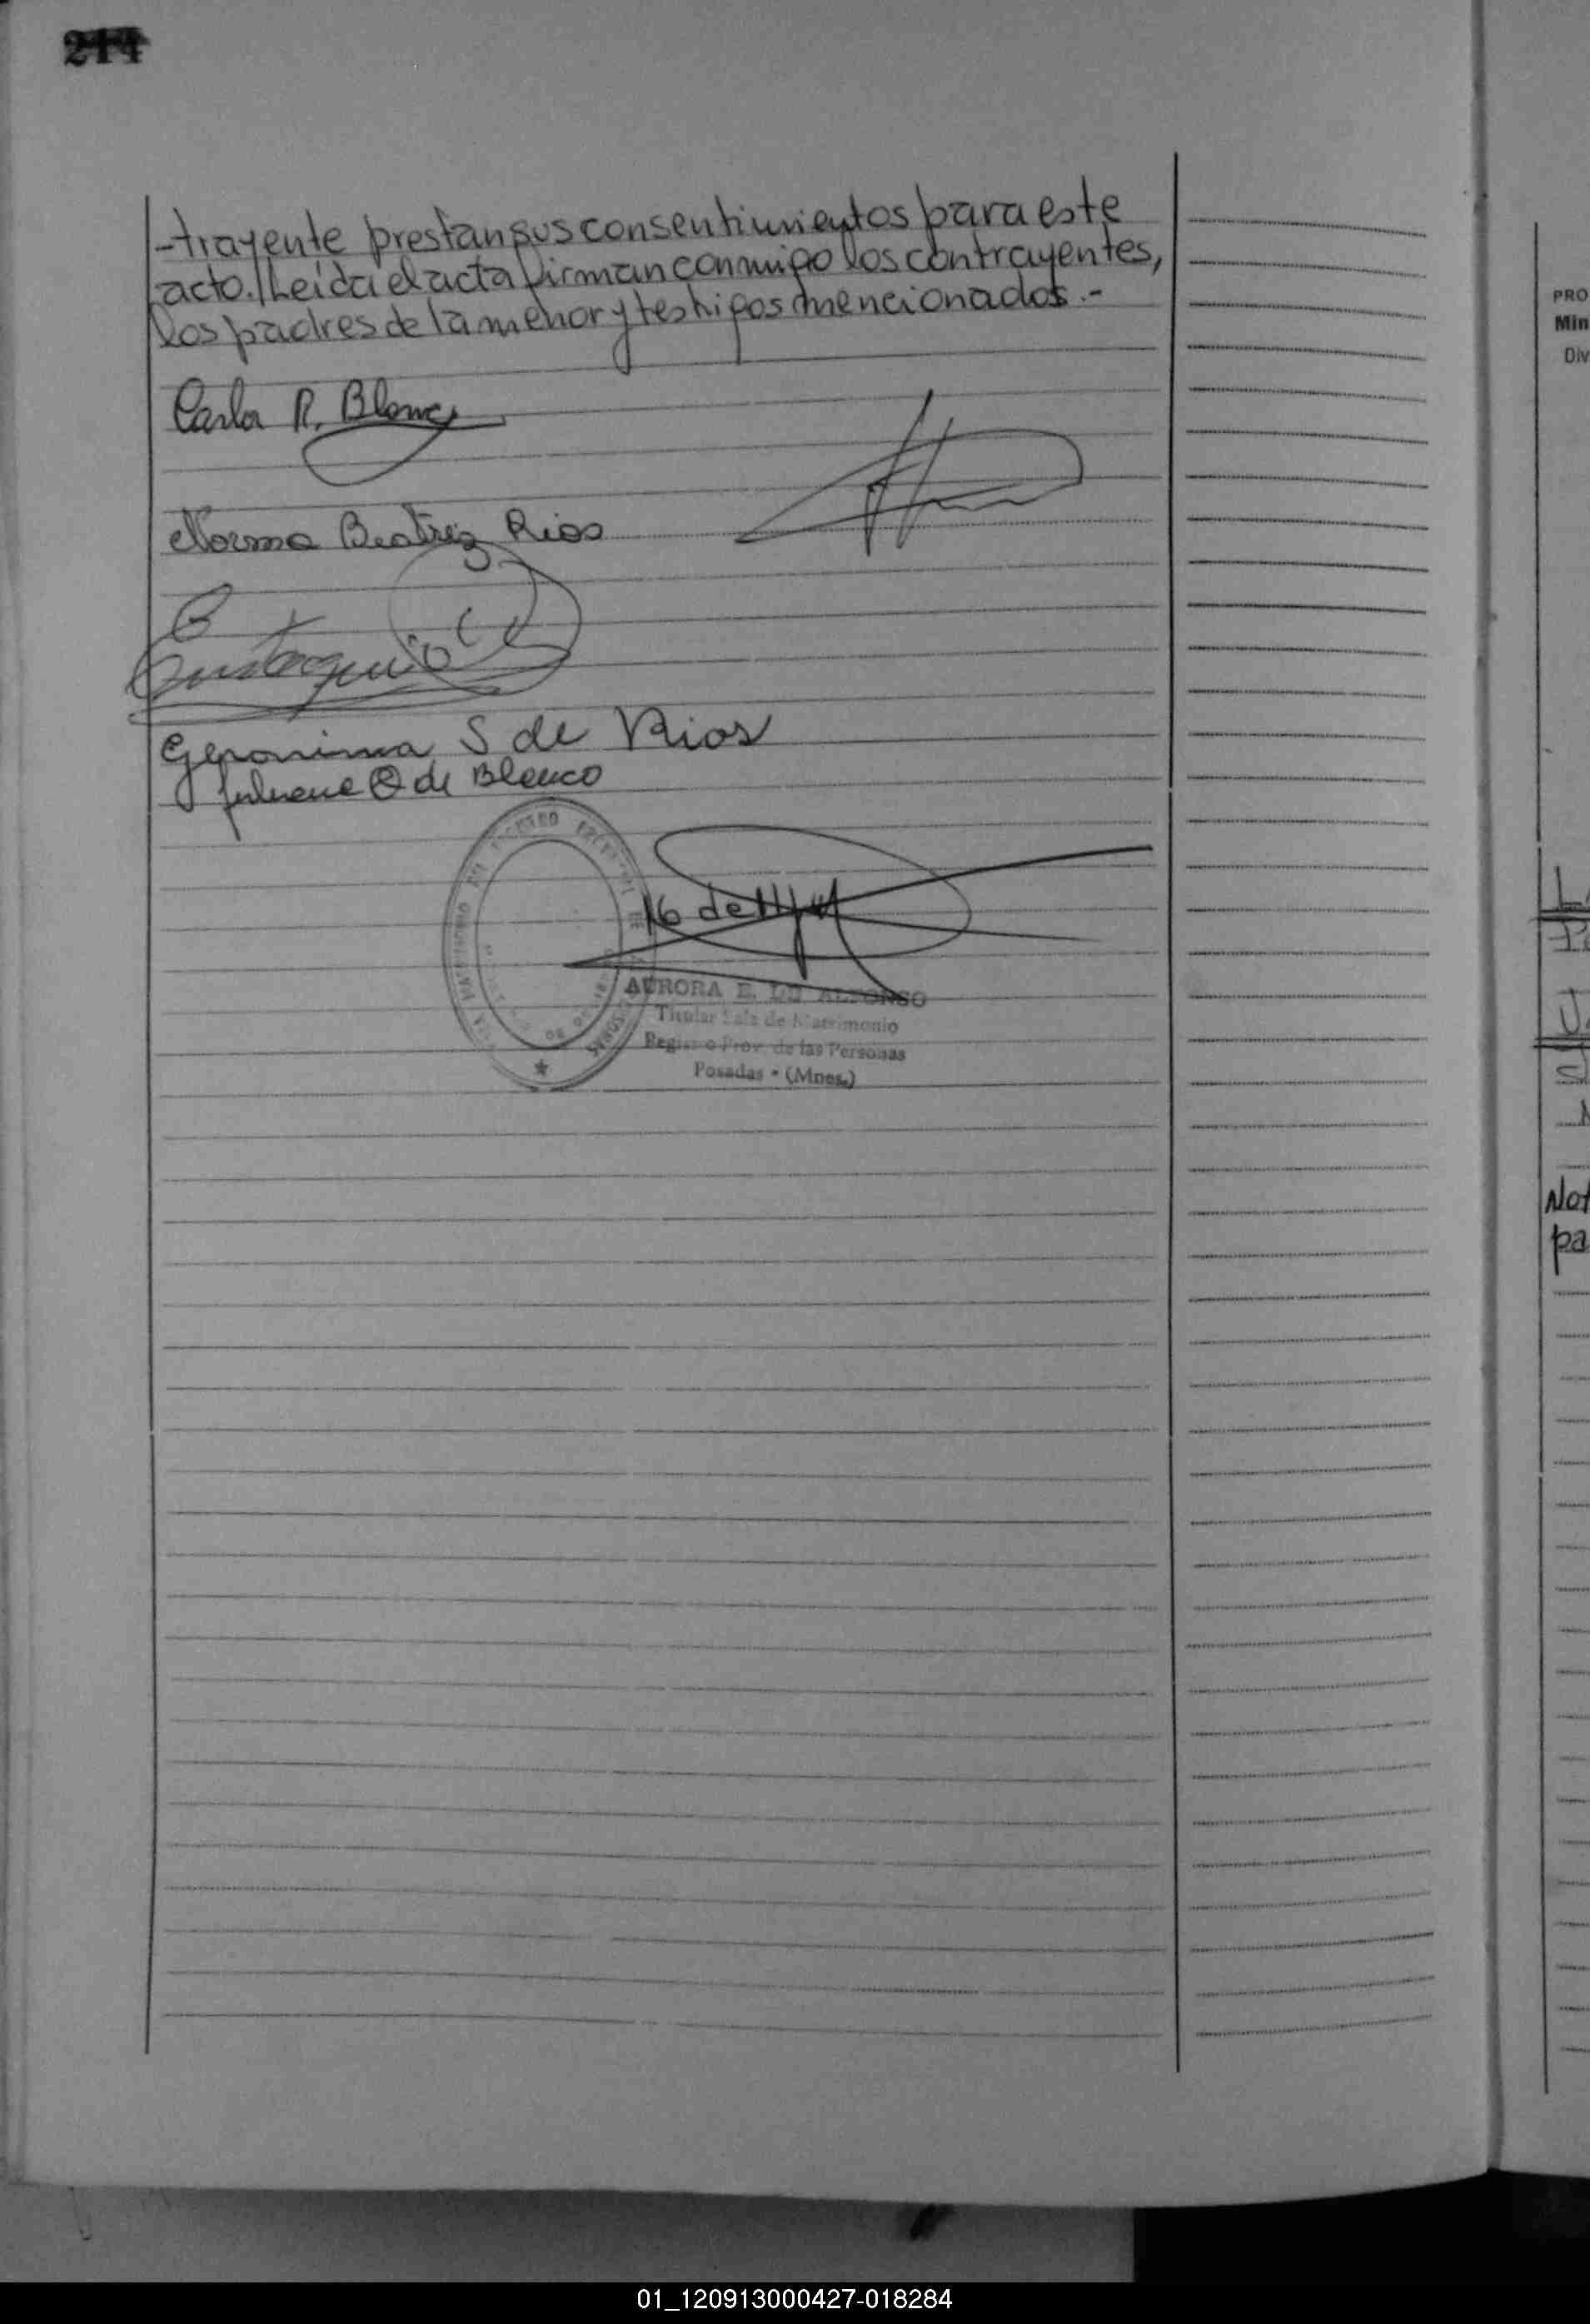 214
-trayente prestan sus consentimientos para este
acto. Leída el acta firman conmigo los contrayentes,
los padres de la menor y testigos mencionados.-
Carlos R. Blanco
Norma Beatriz Rios
Eustaquio
Geronima S de Rios
de Blanco
16 de
AURORA E. DE ALFONSO
Titular Sala de Matrimonio
Registro Prov. de las Personas
Posadas - (Mnes.)
PRO
Min
Div
Not
pa
01_120913000427-018284